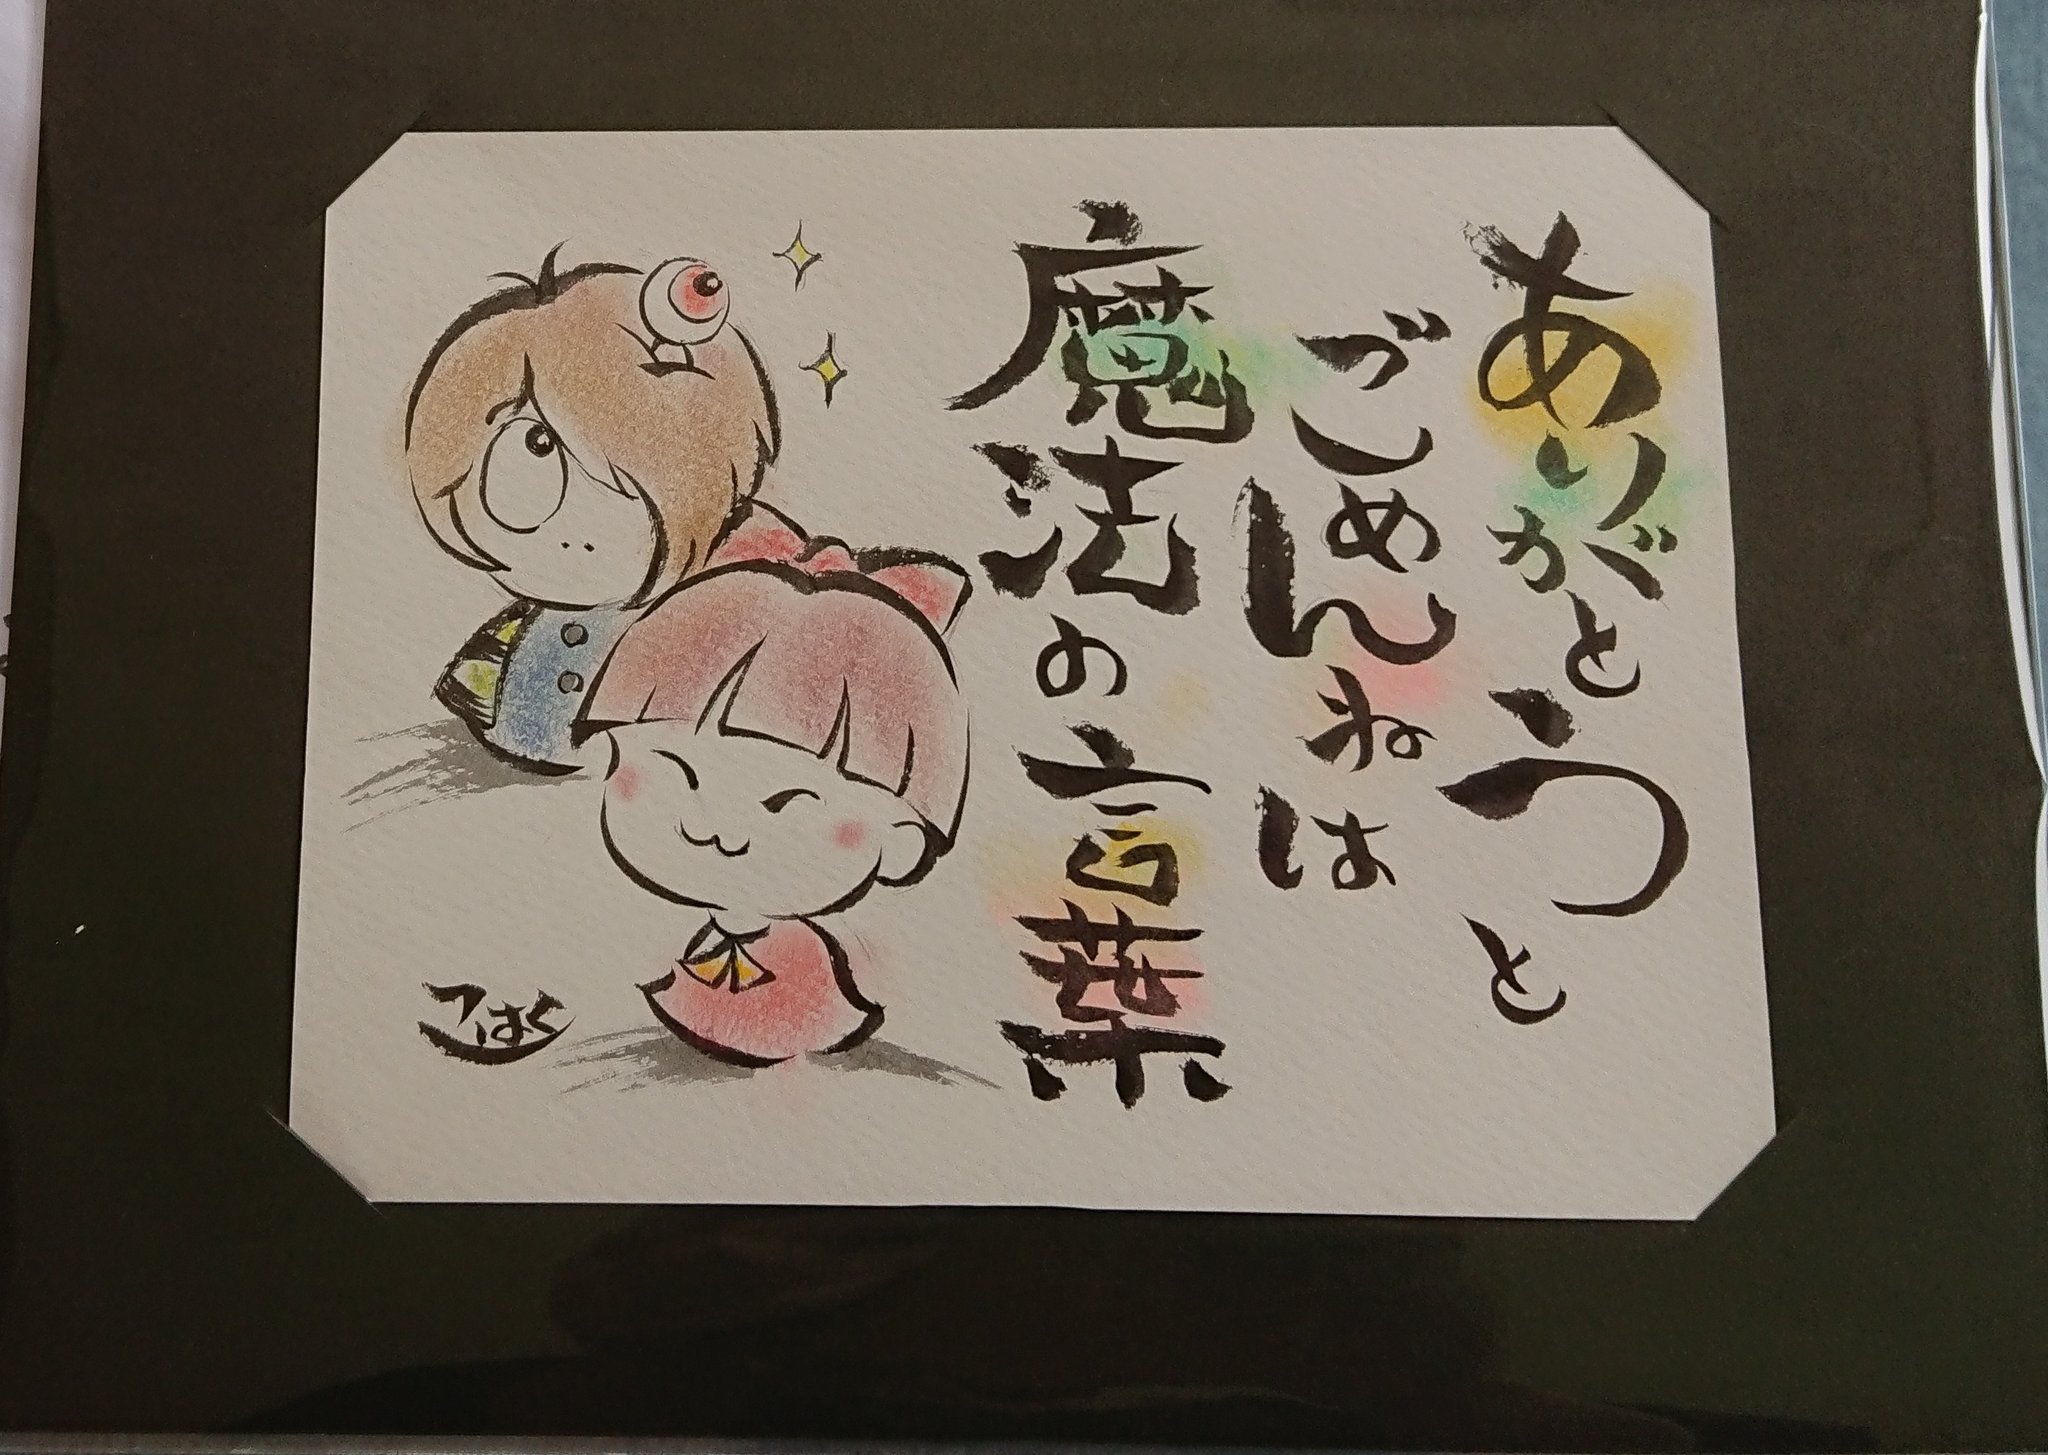 ありがとうと
ごめんねは
魔法の言葉
こはく